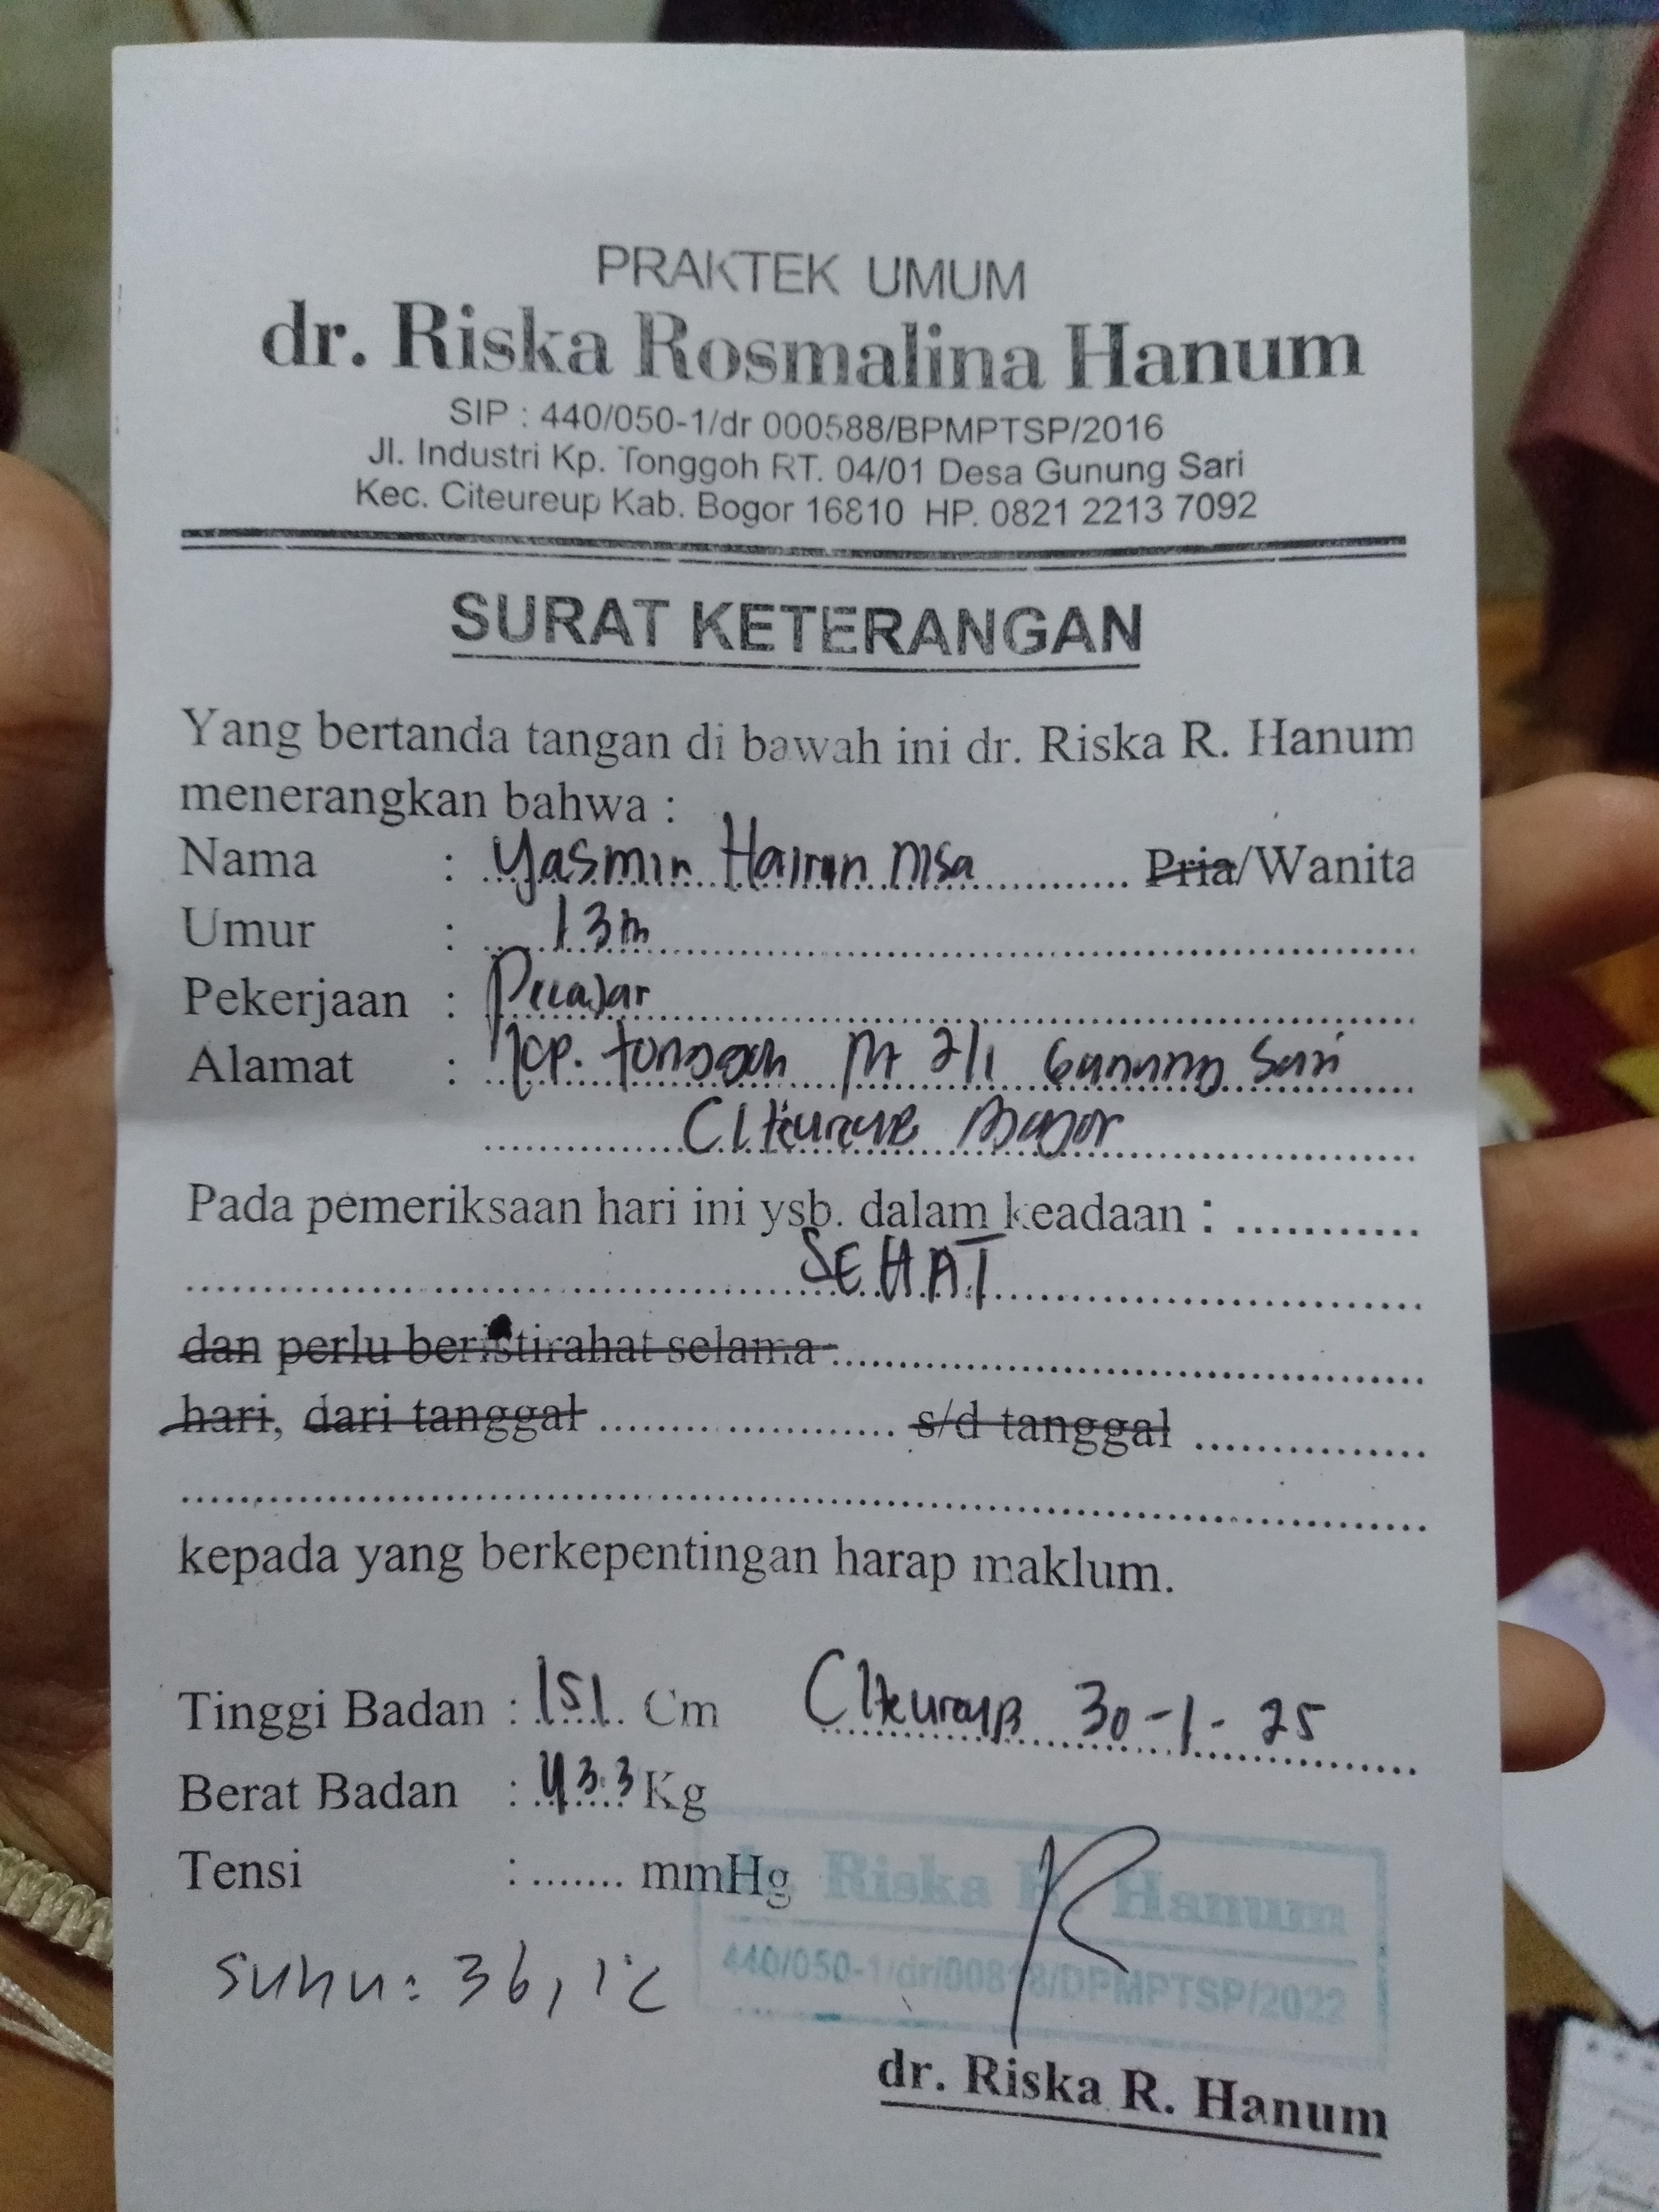 PRAKTEK UMUM
dr. Riska Rosmalina Hanum
SIP : 440/050-1/dr 000588/BPMPTSP/2016
Jl. Industri Kp. Tonggoh RT. 04/01 Desa Gunung Sari
Kec. Citeureup Kab. Bogor 16810 HP. 0821 2213 7092
SURAT KETERANGAN
Yang bertanda tangan di bawah ini dr. Riska R. Hanum
menerangkan bahwa :
Nama : Yasmin Hairun nisa Pria/Wanita
Umur : 13
Pekerjaan : Pelajar
Alamat : Kp. tonggoh Rt 2/1 Gunung Sari
Citeureup Bogor
Pada pemeriksaan hari ini ysb. dalam keadaan :
SEHAT
dan perlu beristirahat selama
hari, dari tanggal s/d tanggal
kepada yang berkepentingan harap maklum.
Tinggi Badan : 151 Cm Citeureup 30-1-25
Berat Badan : 43.3 Kg
Tensi : mmHg
Riska R. Hanum
Suhu : 36,1°C
440/050-1/dr/00818/DPMPTSP/2022
dr. Riska R. Hanum